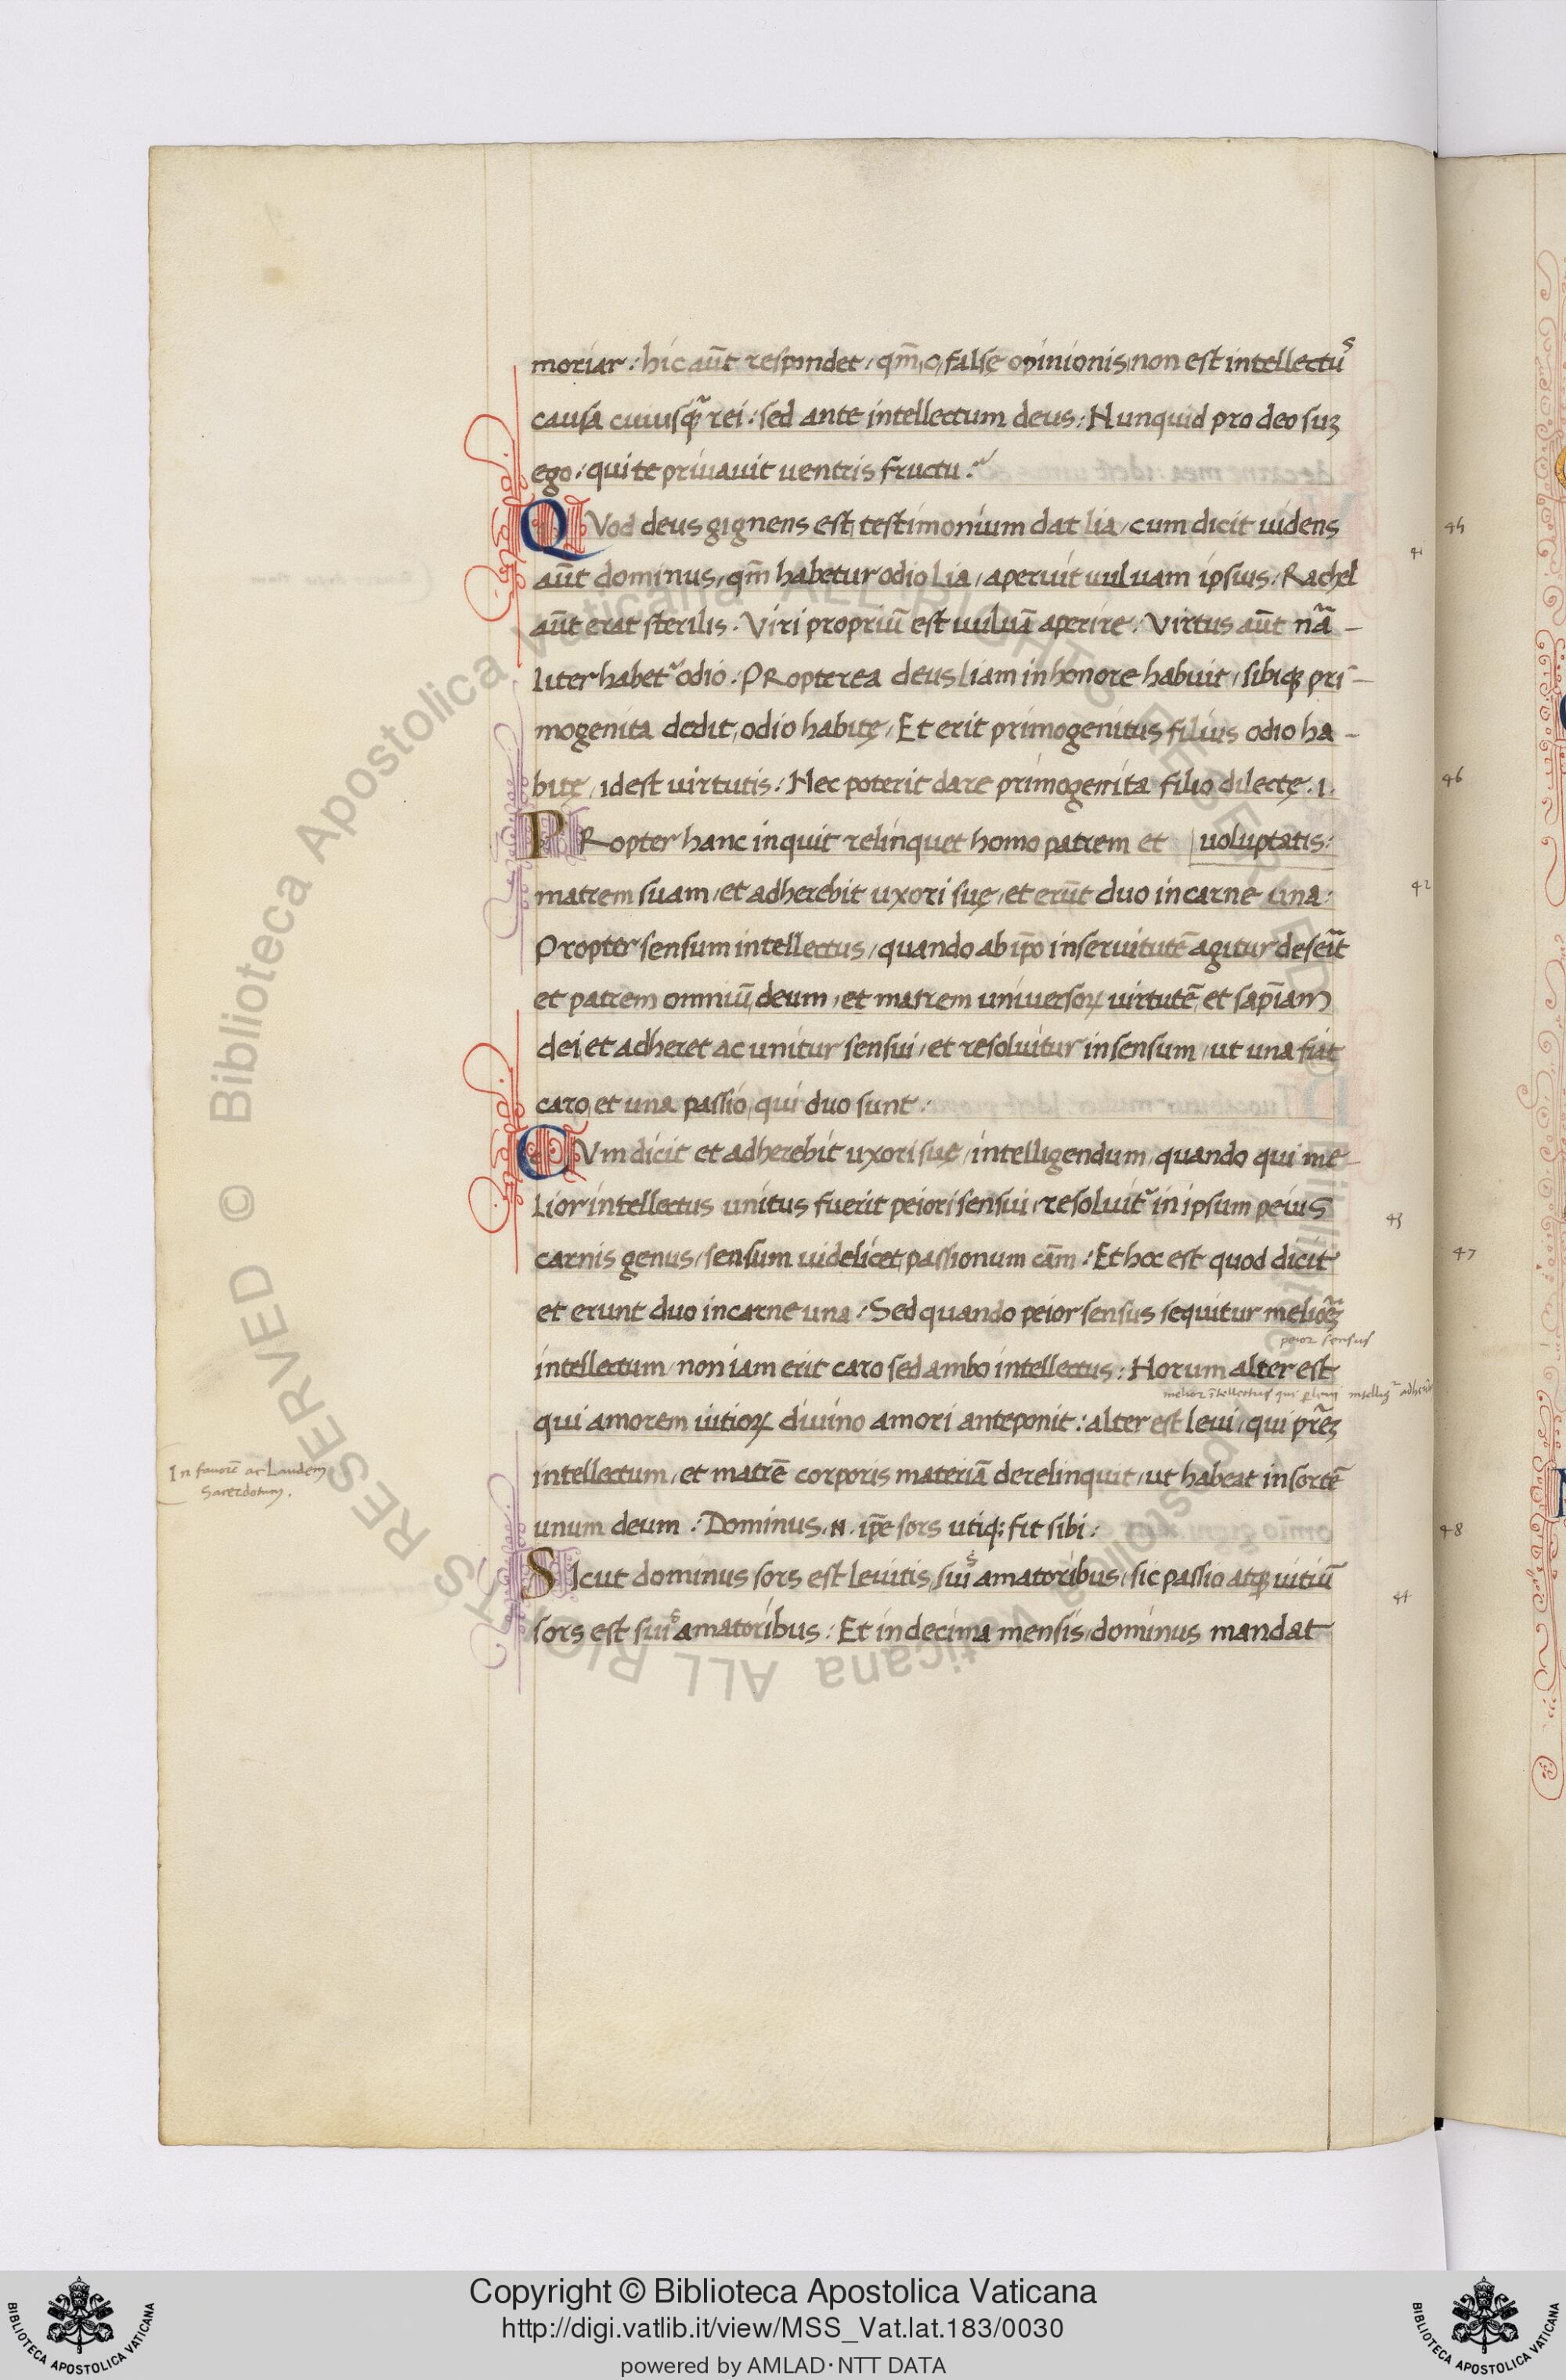 moriar: hic aūt respondet, qm̄, o, false̜ opinionis, non est intellectus
causa cuiusq̃ rei: sed ante intellectum deus: Nunquid pro deo suꝫ
ego: qui te priuauit uentris fructu:
QVod deus gignens est, testimonium dat lia, cum dicit uidens
aūt dominus, qm̄ habetur odio Lia, aperuit uuluam ipsius: Rachel
aūt erat sterilis. Viri propriū est uuluā aperire: Virtus aūt nā-
liter habet᷑ odio: PRopterea deus liam in honore habuit, sibiqꝫ pri-
mogenita dedit, odio habite̜, Et erit primogenitus filius odio ha-
bite̜, idest uirtutis: Nec poterit dare primogenita filio dilecte̜.i.
PRopter hanc inquit relinquet homo patrem et | uoluptatis:
matrem suam, et adherebit uxori sue̜, et erūt duo in carne una:
Propter sensum intellectus, quando ab ip̄o in seruitutē agitur deseīt
et patrem omniū, deum, et matrem uniuersoꝝ uirtutē, et sap̄iam
dei et adheret ac unitur sensui, et resoluitur in sensum, ut una fiat
caro, et una passio, qui duo sunt:
CVm dicit et adherebit uxori sue̜, intelligendum, quando qui me-
Lior intellectus unitus fuerit peiori sensui, resoluit᷑ in ipsum peius
carnis genus, sensum uidelicet, passionum cām: Et hoc est quod dicit
et erunt duo in carne una: Sed quando peior sensus sequitur meliōeꝫ
peior sensus
intellectum, non iam erit caro sed ambo intellectus: Horum alter est
melior ītellectus qui
qui amorem uitioꝝ diuino amori anteponit: alter est leui, qui pr̄eꝫ
In fauorē ac Laudem
Sacerdotum.
intellectum, et matrē corporis materiā derelinquit, ut habeat in sortē
unum deum: Dominus .N. ip̄e sors utiqꝫ fit sibi:
SIcut dominus sors est leuitis, suis amatoribus, sic passio atqꝫ uitiū
sors est suis amatoribus: Et in decima mensis, dominus mandat
41
42
43
44
45
46
47
48
© Biblioteca Apostolica Vaticana ALL RIGHTS RESERVED
Copyright © Biblioteca Apostolica Vaticana
http://digi.vatlib.it/view/MSS_Vat.lat.183/0030
powered by AMLAD·NTT DATA
BIBLIOTECA APOSTOLICA VATICANA
BIBLIOTECA APOSTOLICA VATICANA